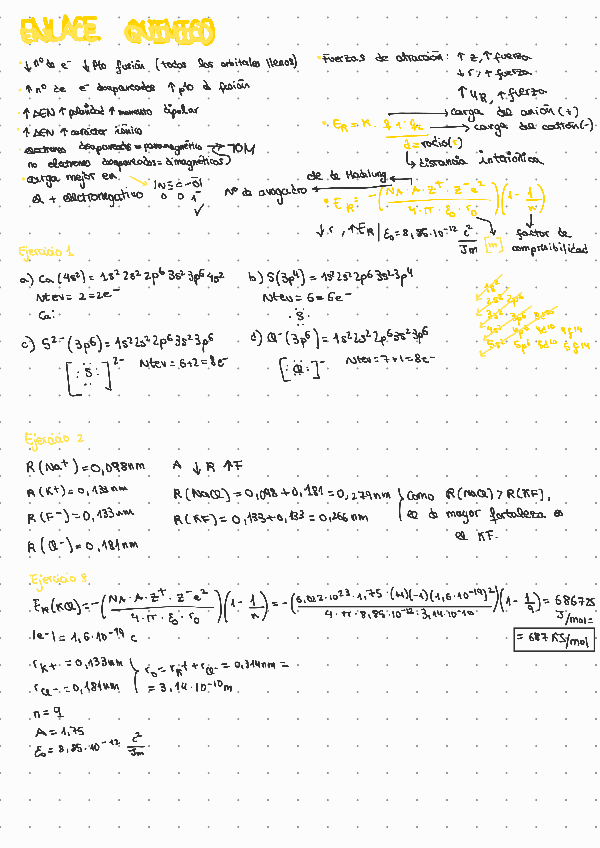 ENLACE QUÍMICO
↓ nº de e⁻ ↓ Pto fusión (todos los orbitales llenos)
· ↑ nº de e⁻ desapareados ↑ pto d fusión
↑ ΔEN ↑ polaridad ↑ momento dipolar
· ↑ ΔEN ↑ carácter iónico
electrones desapareados = paramagnético → TOM
no electrones desapareados = dimagnéticos)
· carga mejor en
Cl + electronegativo
[N≡C-O]
0 0 1⁻
✓
· Fuerzas de atracción: ↑ z, ↑ fuerza
↓ r, ↑ fuerza
↑ UR, ↑ fuerza
· ER = K ·
→ carga del anión (+)
→ carga del catión (-)
d = radio(s)
↳ distancia interiónica
cte de Madelung
Nº de avogadro
· ER = -(NA · A · Z⁺ · Z⁻ e² / 4 · π · ξ₀ · r₀)(1 - 1/n)
↓ r, ↑ ER | ξ₀ = 8,85·10⁻¹² C²/Jm [m]
factor de
compresibilidad
Ejercicio 1
a) Ca (4s²) = 1s² 2s² 2p⁶ 3s² 3p⁶ 4s²
Ntev = 2 = 2e⁻
Ca:
b) S(3p⁴) = 1s² 2s² 2p⁶ 3s² 3p⁴
Ntev = 6 = 6e⁻
:S:
c) S²⁻ (3p⁶) = 1s² 2s² 2p⁶ 3s² 3p⁶
[:S:]²⁻ Ntev = 6+2 = 8e⁻
d) Cl⁻ (3p⁶) = 1s² 2s² 2p⁶ 3s² 3p⁶
[:Cl:]⁻ Ntev = 7+1 = 8e⁻
1s²
2s² 2p⁶
3s² 3p⁶ 3d¹⁰
4s² 4p⁶ 4d¹⁰ 4f¹⁴
5s² 5p⁶ 5d¹⁰ 5f¹⁴
Ejercicio 2
R(Na⁺) = 0,098nm
R(K⁺) = 0,133nm
R(F⁻) = 0,133nm
R(Cl⁻) = 0,181nm
A ↓ R ↑F
R(NaCl) = 0,098 + 0,181 = 0,279nm
R(KF) = 0,133 + 0,133 = 0,266nm
Como R(NaCl) > R(KF),
el d mayor fortaleza es
el KF.
ER(KCl) = -(NA · A · Z⁺ · Z⁻ e² / 4 · π · ξ₀ · r₀)(1 - 1/n) = -(6,022·10²³ · 1,75 · (+1)(-1)(1,6·10⁻¹⁹)² / 4 · π · 8,85·10⁻¹² · 3,14·10⁻¹⁰)(1 - 1/9) = 686725 J/mol =
= 687 KJ/mol
|e⁻| = 1,6·10⁻¹⁹ c
rK⁺ = 0,133nm
rCl⁻ = 0,181nm
r₀ = rK⁺ + rCl⁻ = 0,314nm =
= 3,14·10⁻¹⁰m
n = 9
A = 1,75
ξ₀ = 8,85·10⁻¹² C²/Jm